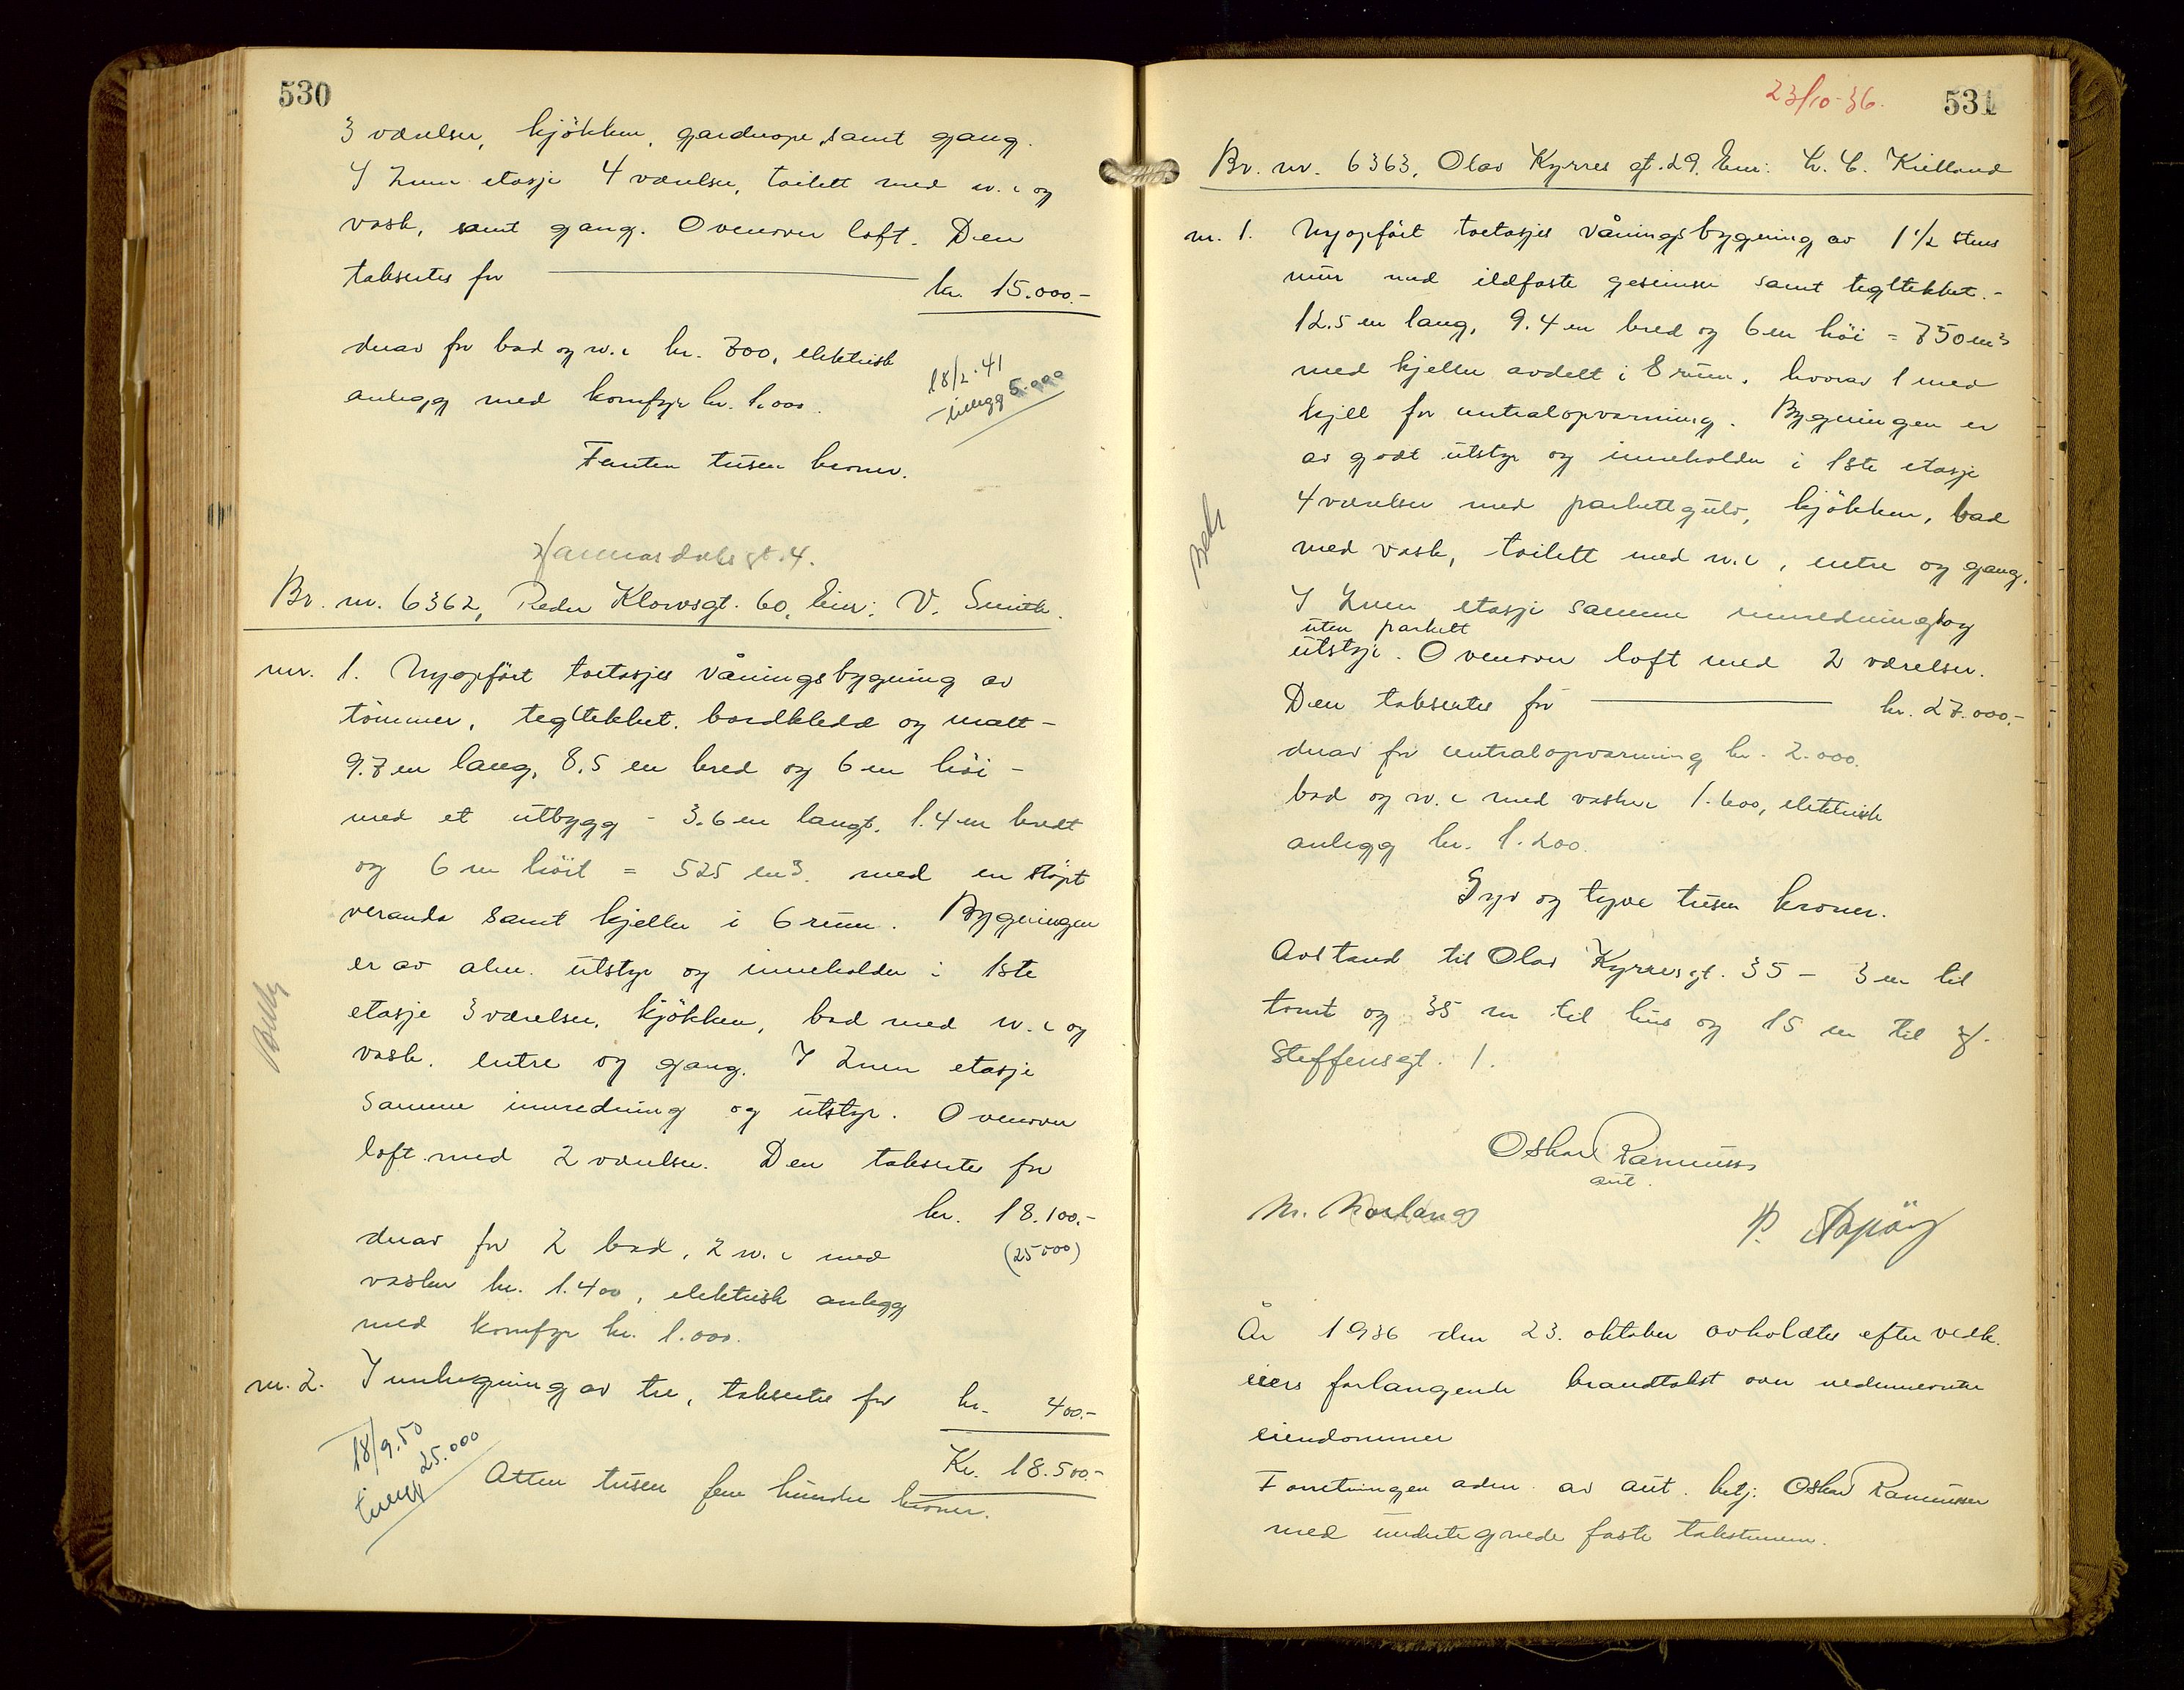 530
3 værelser, kjökken, garderope, samt gang.
I 2nen etasje 4 værelser, toilett med w.c og
vask, samt gang. Ovenover loft. Den
takseres for kr. 15.000.-
derav for bad og w.c kr. 700, elektrisk
anlegg med komfyr kr. 1.000.
18/2.41
tillegg 5.000
Femten tusen kroner.
gt. 4.
Br. nr. 6362, Peder Klowsgt. 60, Eier: V. Smith.
nr. 1. Nyopfört toetasjes våningsbygning av
tömmer, tegltekket, bordkledd og malt -
9.7 m lang, 8.5 m bred og 6 m höi -
med et utbygg - 3.6 m langt, 1.4 m bredt
og 6 m höit = 525 m3. med en stöpt
veranda samt kjeller i 6 rum. Bygningen
er av alm. utstyr og inneholder i 1ste
etasje 3 værelser, kjökken, bad med w.c og
vask, entre og gang. I 2nen etasje
samme innredning og utstyr. Ovenover
loft med 2 værelser. Den takseres for
kr. 18.100.-
(25000)
derav for 2 bad, 2 w.c med
vasker kr. 1.400, elektrisk anlegg
med komfyr kr. 1.000.
nr. 2. Innhegning av tre, takseres for kr. 400.-
Kr. 18.500.-
18/9.50
tillegg 25.000
Atten tusen fem hundre kroner.
23/10-36.
531
Br. nr. 6363, Olav Kyrres gt. 29. Eier: Kielland
nr. 1. Nyopfört toetasjes våningsbygning av 1 1/2 stens
mur med ildfaste gesimser samt tegltekket.-
12.5 m lang, 9.4 m bred og 6 m höi = 750 m3
med kjeller avdelt i 8 rum, hvorav 1 med
kjell for centralopvarming. Bygningen er
av godt utstyr og inneholder i 1ste etasje
4 værelser med parkettgulv, kjökken, bad
med vask, toilett med w.c, entre og gang.
I 2nen etasje samme innredning og
uten parkett
utstyr. Ovenover loft med 2 værelser.
Den takseres for kr. 27.000.-
derav for centralopvarming kr. 2.000.
bad og w.c med vasker 1.600, elektrisk
anlegg kr. 1.200.
Syv og tyve tusen kroner.
Avstand til Olav Kyrresgt. 35 - 3 m til
tomt og 35 m til hus og 15 m til H.
Steffensgt. 1.
Oskar Rasmussen
aut.
År 1936 den 23. oktober avholdtes efter vedk.
eiers forlangende brandtakst over nedennevnte
eiendommer
Forretningen adm. av aut. betj. Oskar Rasmussen
med undertegnede faste takstmenn.